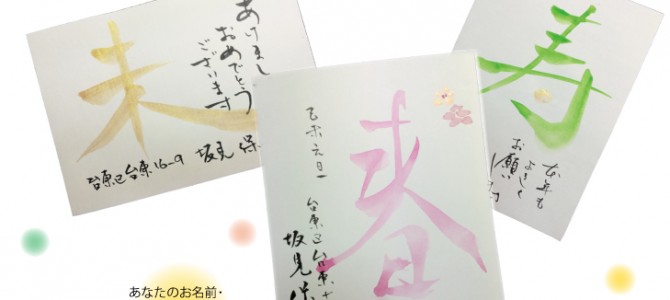 未
あけまし
おめでとう
ございます
台原区台原16-9 坂見 保
春
乙未元旦
台原区台原十
坂見 保
寿
本年も
よろしく
お願い
あなたのお名前・